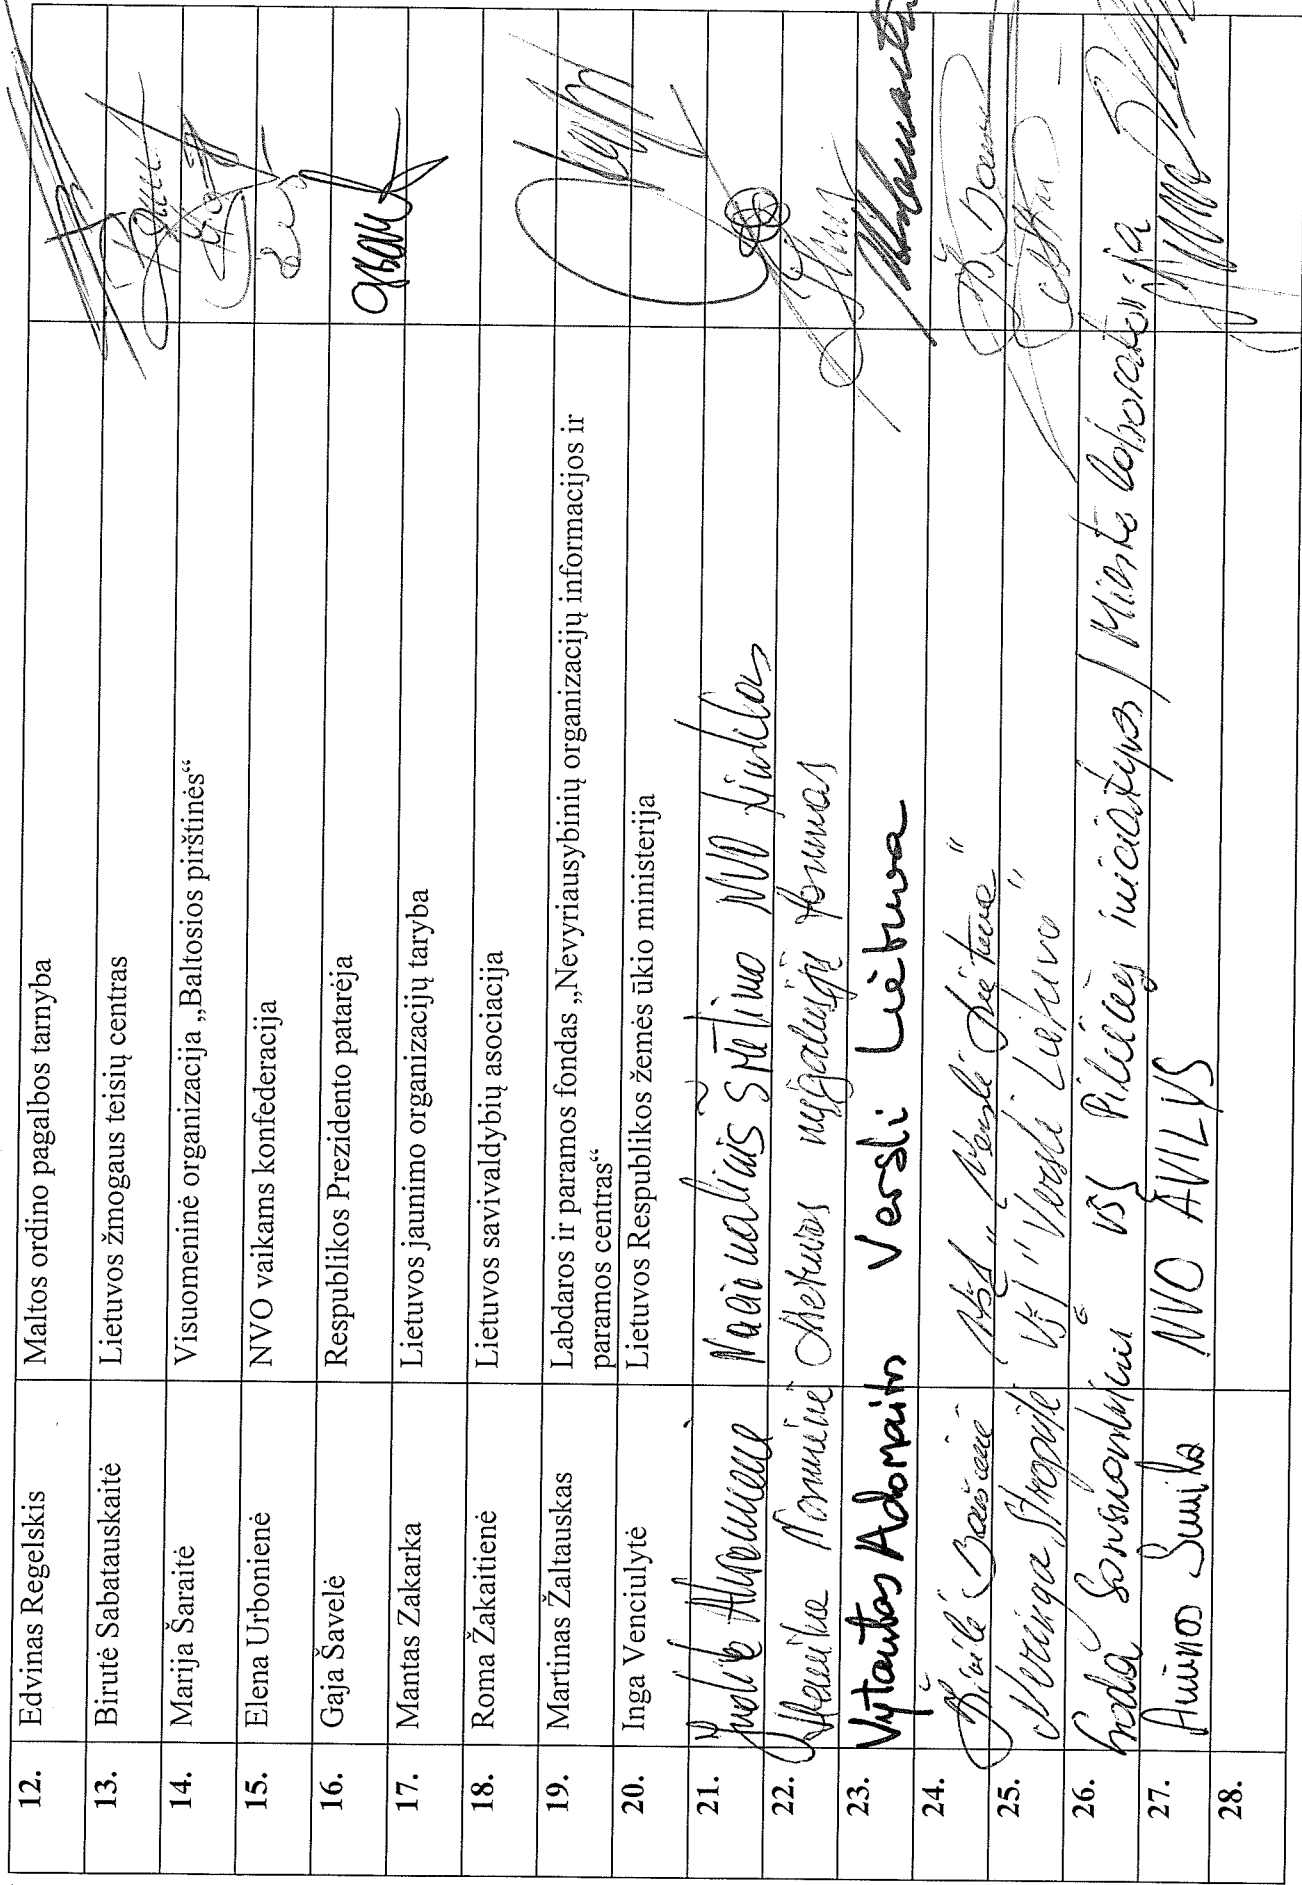 12. Edvinas Regelskis Maltos ordino pagalbos tarnyba
13. Birutė Sabatauskaitė Lietuvos žmogaus teisių centras
14. Marija Šaraitė Visuomeninė organizacija „Baltosios pirštinės“
15. Elena Urbonienė NVO vaikams konfederacija
16. Gaja Šavelė Respublikos Prezidento patarėja
17. Mantas Zakarka Lietuvos jaunimo organizacijų taryba
18. Roma Žakaitienė Lietuvos savivaldybių asociacija
19. Martinas Žaltauskas Labdaros ir paramos fondas „Nevyriausybinių organizacijų informacijos ir
paramos centras“
20. Inga Venciulytė Lietuvos Respublikos žemės ūkio ministerija
21. Nacionalinis švietimo NVO tinklas
22. Lietuvos neįgaliųjų forumas
23. Vytautas Adomaitis Versli Lietuva
24. VšĮ „Versli Lietuva"
25. Neringa Stropytė VšĮ "Versli Lietuva"
26. VšĮ Piliečių iniciatyvos / Miesto laboratorija
27. Aurimas Smilga NVO AVILYS
28.